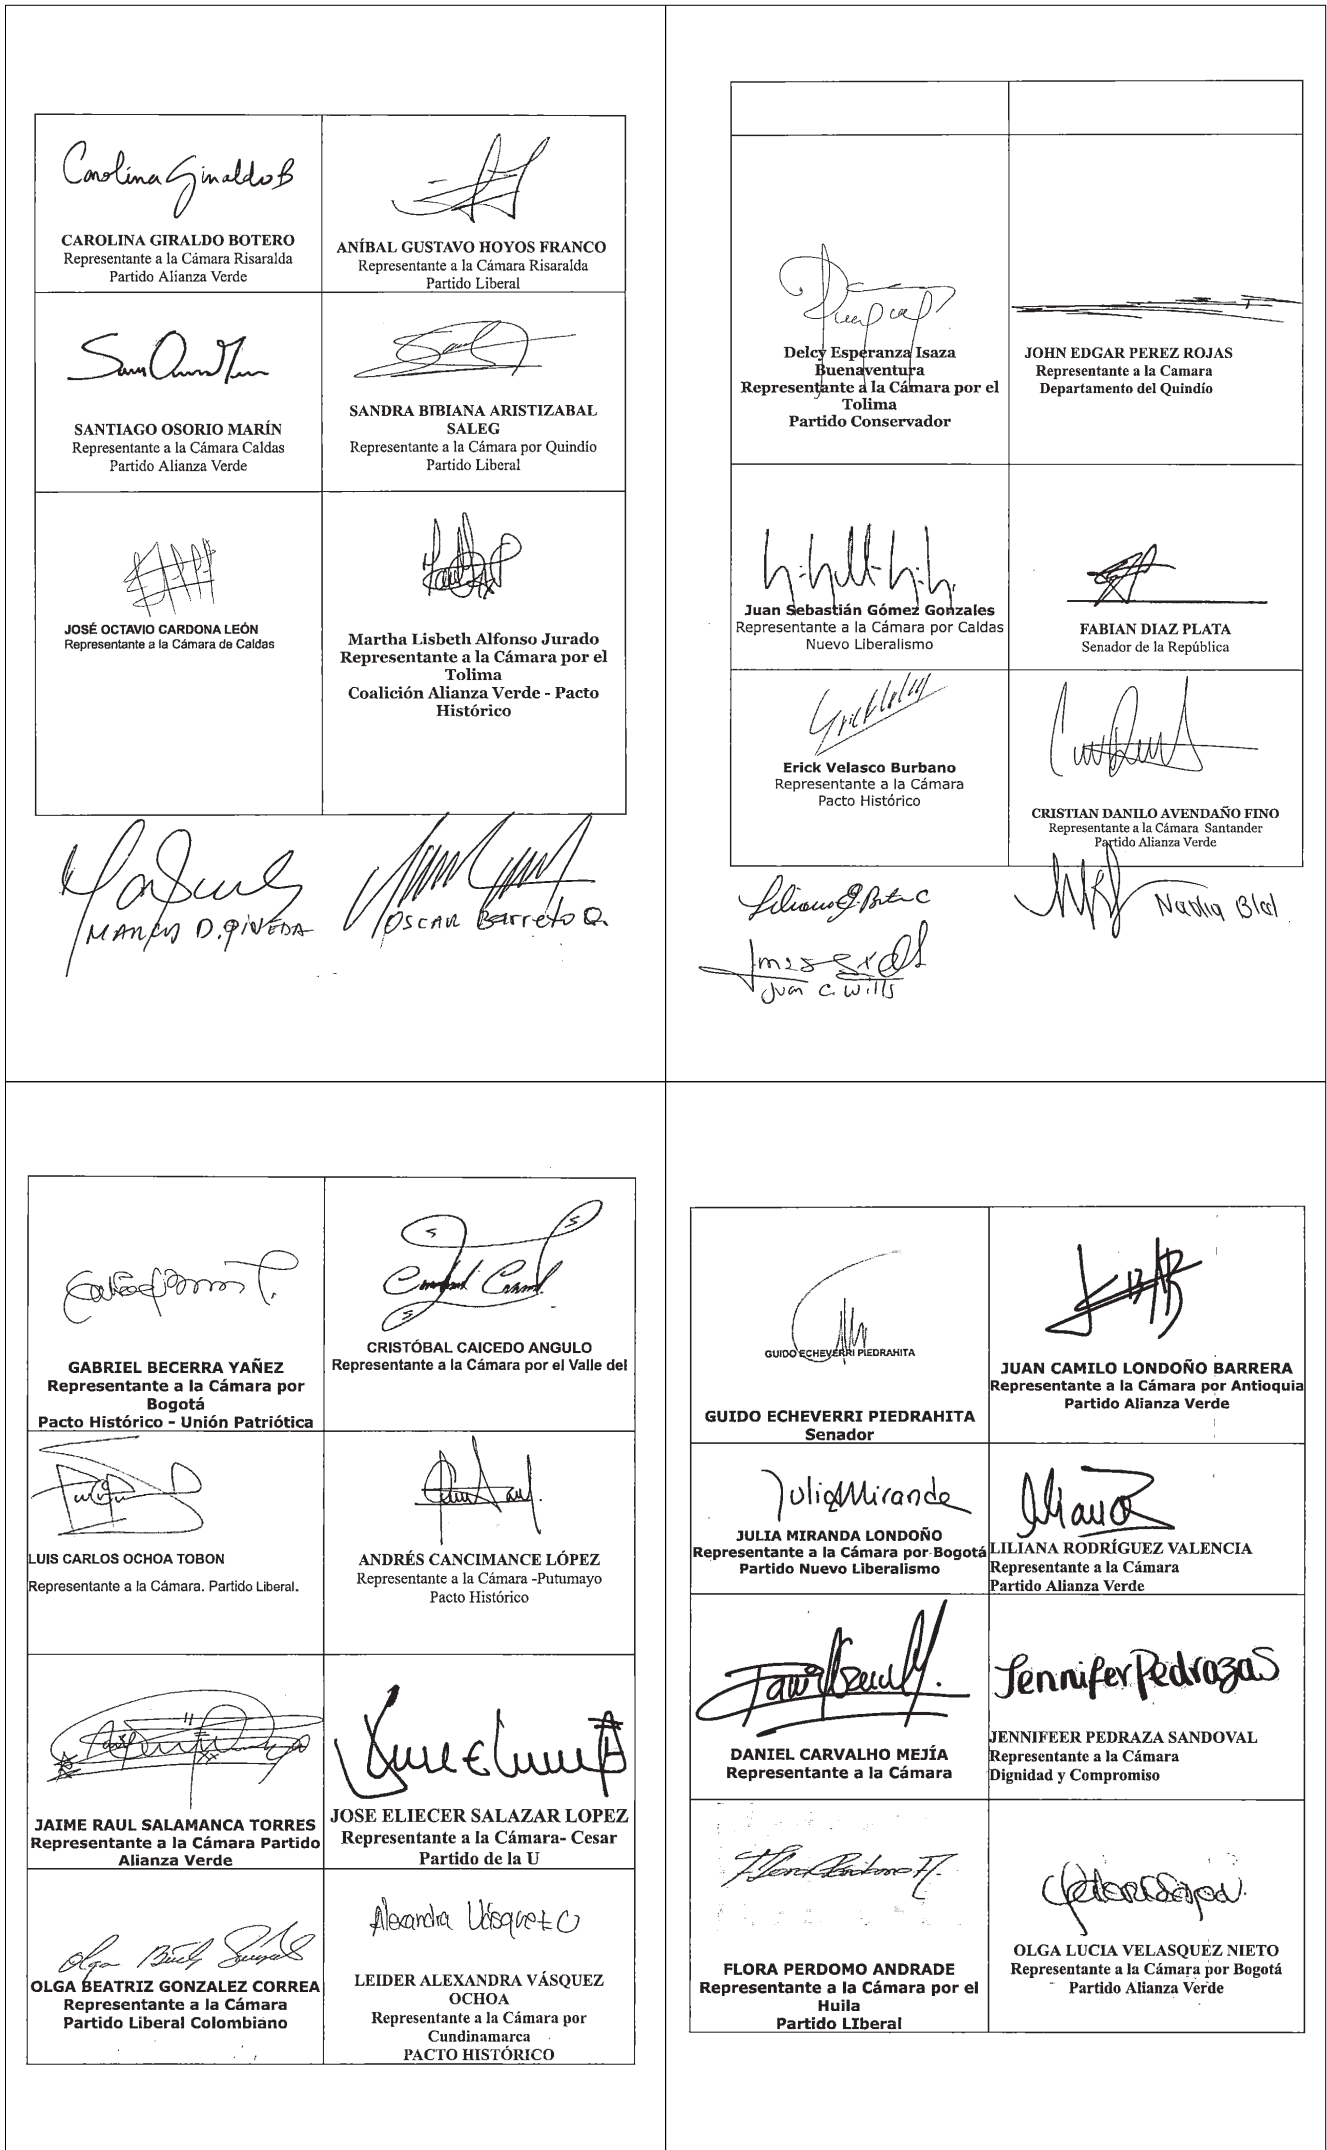 Carolina Giraldo B
CAROLINA GIRALDO BOTERO
Representante a la Cámara Risaralda
Partido Alianza Verde
ANÍBAL GUSTAVO HOYOS FRANCO
Representante a la Cámara Risaralda
Partido Liberal
SANTIAGO OSORIO MARÍN
Representante a la Cámara Caldas
Partido Alianza Verde
SANDRA BIBIANA ARISTIZABAL
SALEG
Representante a la Cámara por Quindío
Partido Liberal
JOSÉ OCTAVIO CARDONA LEÓN
Representante a la Cámara de Caldas
Martha Lisbeth Alfonso Jurado
Representante a la Cámara por el
Tolima
Coalición Alianza Verde - Pacto
Histórico
MARCOS D. PINEDA
OSCAR Barreto Q.
Delcy Esperanza Isaza
Buenaventura
Representante a la Cámara por el
Tolima
Partido Conservador
JOHN EDGAR PEREZ ROJAS
Representante a la Camara
Departamento del Quindío
Juan Sebastián Gómez Gonzales
Representante a la Cámara por Caldas
Nuevo Liberalismo
FABIAN DIAZ PLATA
Senador de la República
Erick Velasco Burbano
Representante a la Cámara
Pacto Histórico
CRISTIAN DANILO AVENDAÑO FINO
Representante a la Cámara Santander
Partido Alianza Verde
Juan C. Wills
GABRIEL BECERRA YAÑEZ
Representante a la Cámara por
Bogotá
Pacto Histórico - Unión Patriótica
CRISTÓBAL CAICEDO ANGULO
Representante a la Cámara por el Valle del
LUIS CARLOS OCHOA TOBON
Representante a la Cámara. Partido Liberal.
ANDRÉS CANCIMANCE LÓPEZ
Representante a la Cámara -Putumayo
Pacto Histórico
JAIME RAUL SALAMANCA TORRES
Representante a la Cámara Partido
Alianza Verde
JOSE ELIECER SALAZAR LOPEZ
Representante a la Cámara- Cesar
Partido de la U
OLGA BEATRIZ GONZALEZ CORREA
Representante a la Cámara
Partido Liberal Colombiano
Alexandra Vásquez O
LEIDER ALEXANDRA VÁSQUEZ
OCHOA
Representante a la Cámara por
Cundinamarca
PACTO HISTÓRICO
GUIDO ECHEVERRI PIEDRAHITA
GUIDO ECHEVERRI PIEDRAHITA
Senador
JUAN CAMILO LONDOÑO BARRERA
Representante a la Cámara por Antioquia
Partido Alianza Verde
Julia Miranda
JULIA MIRANDA LONDOÑO
Representante a la Cámara por Bogotá
Partido Nuevo Liberalismo
LILIANA RODRÍGUEZ VALENCIA
Representante a la Cámara
Partido Alianza Verde
DANIEL CARVALHO MEJÍA
Representante a la Cámara
Jennifer Pedraza S
JENNIFEER PEDRAZA SANDOVAL
Representante a la Cámara
Dignidad y Compromiso
FLORA PERDOMO ANDRADE
Representante a la Cámara por el
Huila
Partido LIberal
OLGA LUCIA VELASQUEZ NIETO
Representante a la Cámara por Bogotá
Partido Alianza Verde